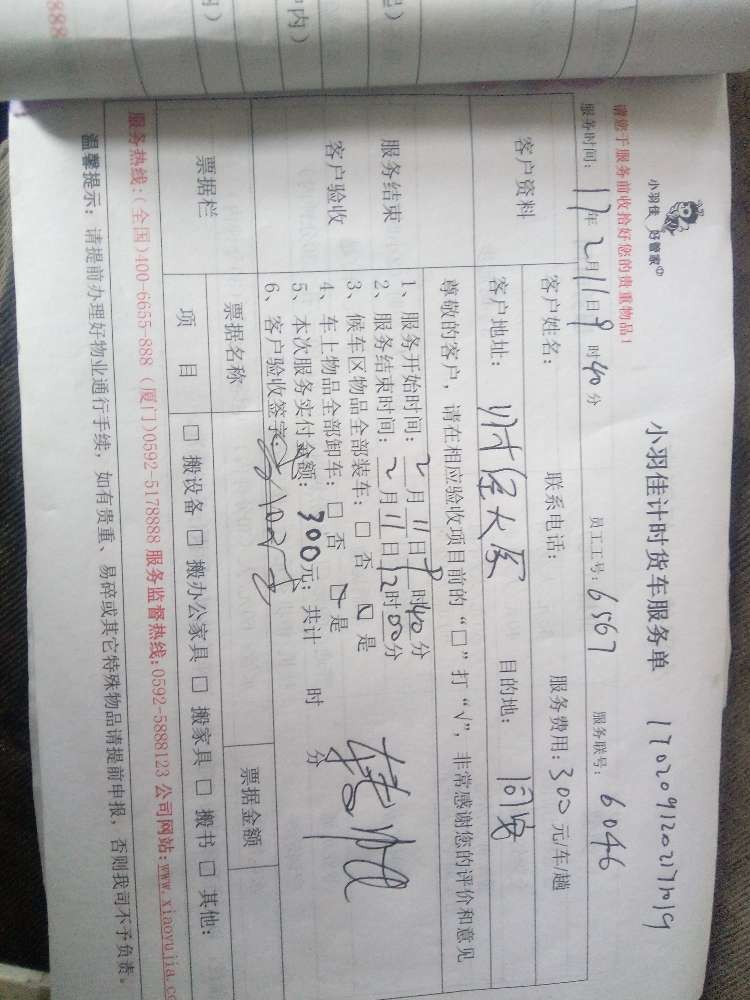 小羽佳 好管家
小羽佳计时货车服务单 170209120217019
请您于服务前收拾好您的贵重物品！
服务时间：17年2月11日9时40分 员工工号：6567 服务联号：6046
客户资料
客户姓名： 联系电话： 服务费用：300元/车/趟
客户地址： 财经大厦 目的地： 同安
服务结束
客户验收
尊敬的客户，请在相应验收项目前的“□”打“√”，非常感谢您的评价和意见
1、服务开始时间：2月11日9时40分
2、服务结束时间：2月11日12时00分
3、候车区物品全部装车：□ 否 ☑ 是
4、车上物品全部卸车：□ 否 ☑ 是
5、本次服务实付金额：300元；共计 时 分
6、客户验收签字：
票据栏
票据名称 票据金额
项 目 □ 搬设备 □ 搬办公家具 □ 搬家具 □ 搬书 □ 其他：
服务热线：(全国)400-6655-888 (厦门)0592-5178888 服务监督热线：0592-5888123 公司网站：www.xiaoyujia.co
温馨提示：请提前办理好物业通行手续，如有贵重、易碎或其它特殊物品请提前申报，否则我司不予负责。